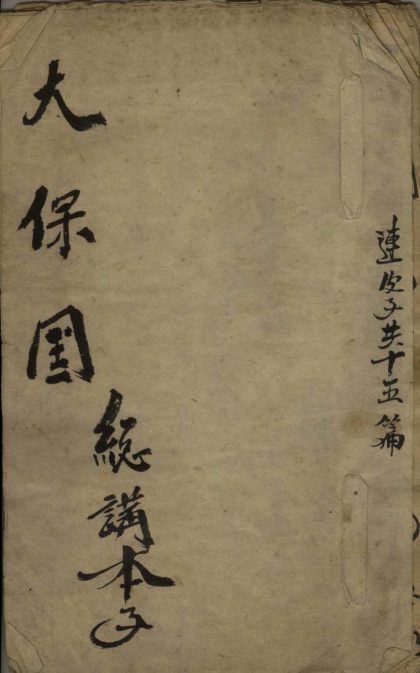 連皮子共十五篇
大保国
総講本子